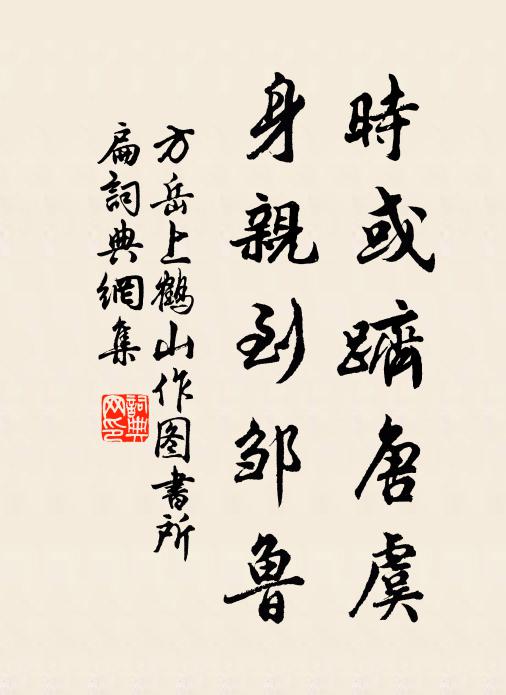 時或躋唐虞
身親到邹魯
方岳上鶴山作图書所
扁詞典網集
詞典网印